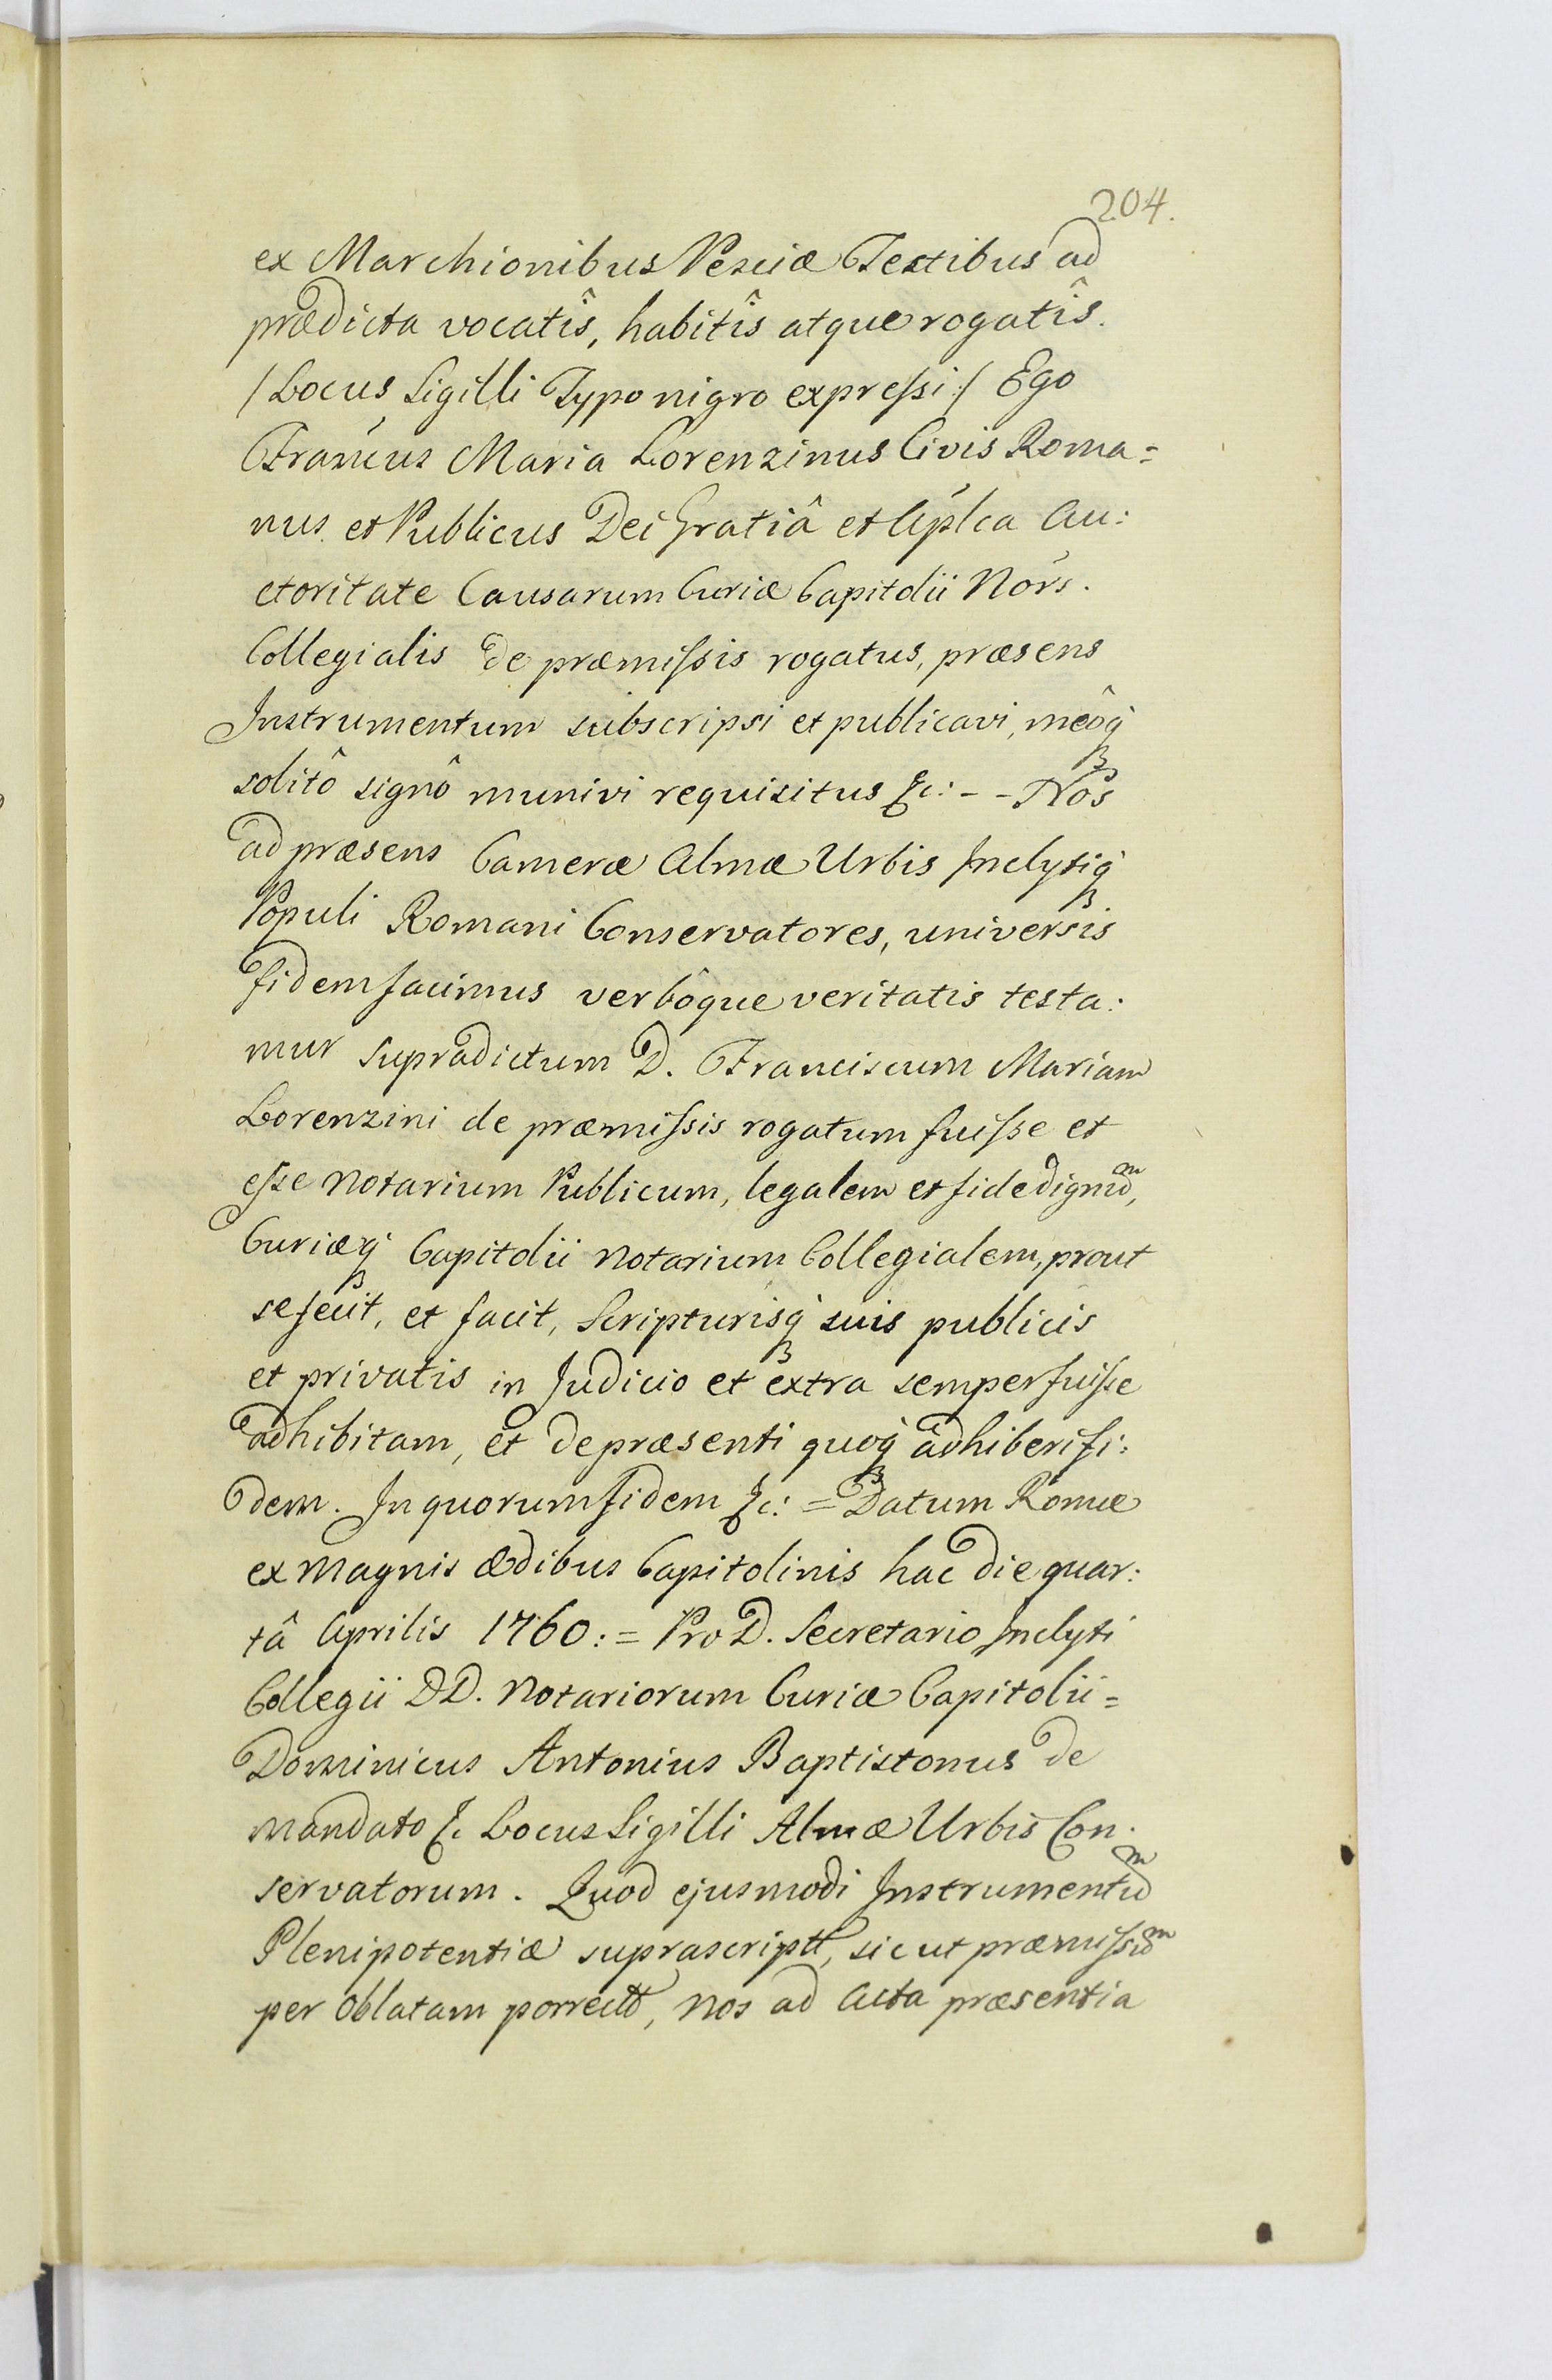 204.
ex Marchionibus Pesciæ Testibus ad
prædicta vocatîs, habitîs atque rogatîs.
/Locus Sigilli Typo nigro expreſsi:/ Ego
Francus Maria Lorenzinus Civis Roma=
nus et Publicus Dei Gratiâ et Aplca Au:
ctoritate Causarum Curiæ Capitolii Nors.
Collegialis de præmiſsis rogatus, præsens
Instrumentum subscripsi et publicavi, meôq́
solitô signô munivi requisitus &c: - - Nos
ad præsens Cameræ Almæ Urbis Inclytiq́
Populi Romani Conservatores, universis
fidem facimus verbôque veritatis testa:
mur supradictum D. Franciscum Mariam
Lorenzini de præmiſsis rogatum fuiſse et
eſse Notarium Publicum, legalem et fide dignum,
Curiæq́ Capitolii Notarium Collegialem, prout
se fecit, et facit, Scripturisq́ suis publicis
et privatis in Judicio et extra semper fuiſse
adhibitam, et de præsenti quoq́ adhiberi fi:
dem. In quorum fidem &c: = Datum Romæ
ex Magnis Ædibus Capitolinis hac die quar:
tâ Aprilis 1760: = Pro D. Secretario Inclyti
Collegii DD. Notariorum Curiæ Capitolii =
Dominicus Antonius Baptistonus de
mandato &c Locus Sigilli Almæ Urbis Con:
servatorum. Quod ejusmodi Instrumentum
Plenipotentiæ suprascriptt, sicut præmiſsum
per Oblatam porrectt, Nos ad Acta præsentia